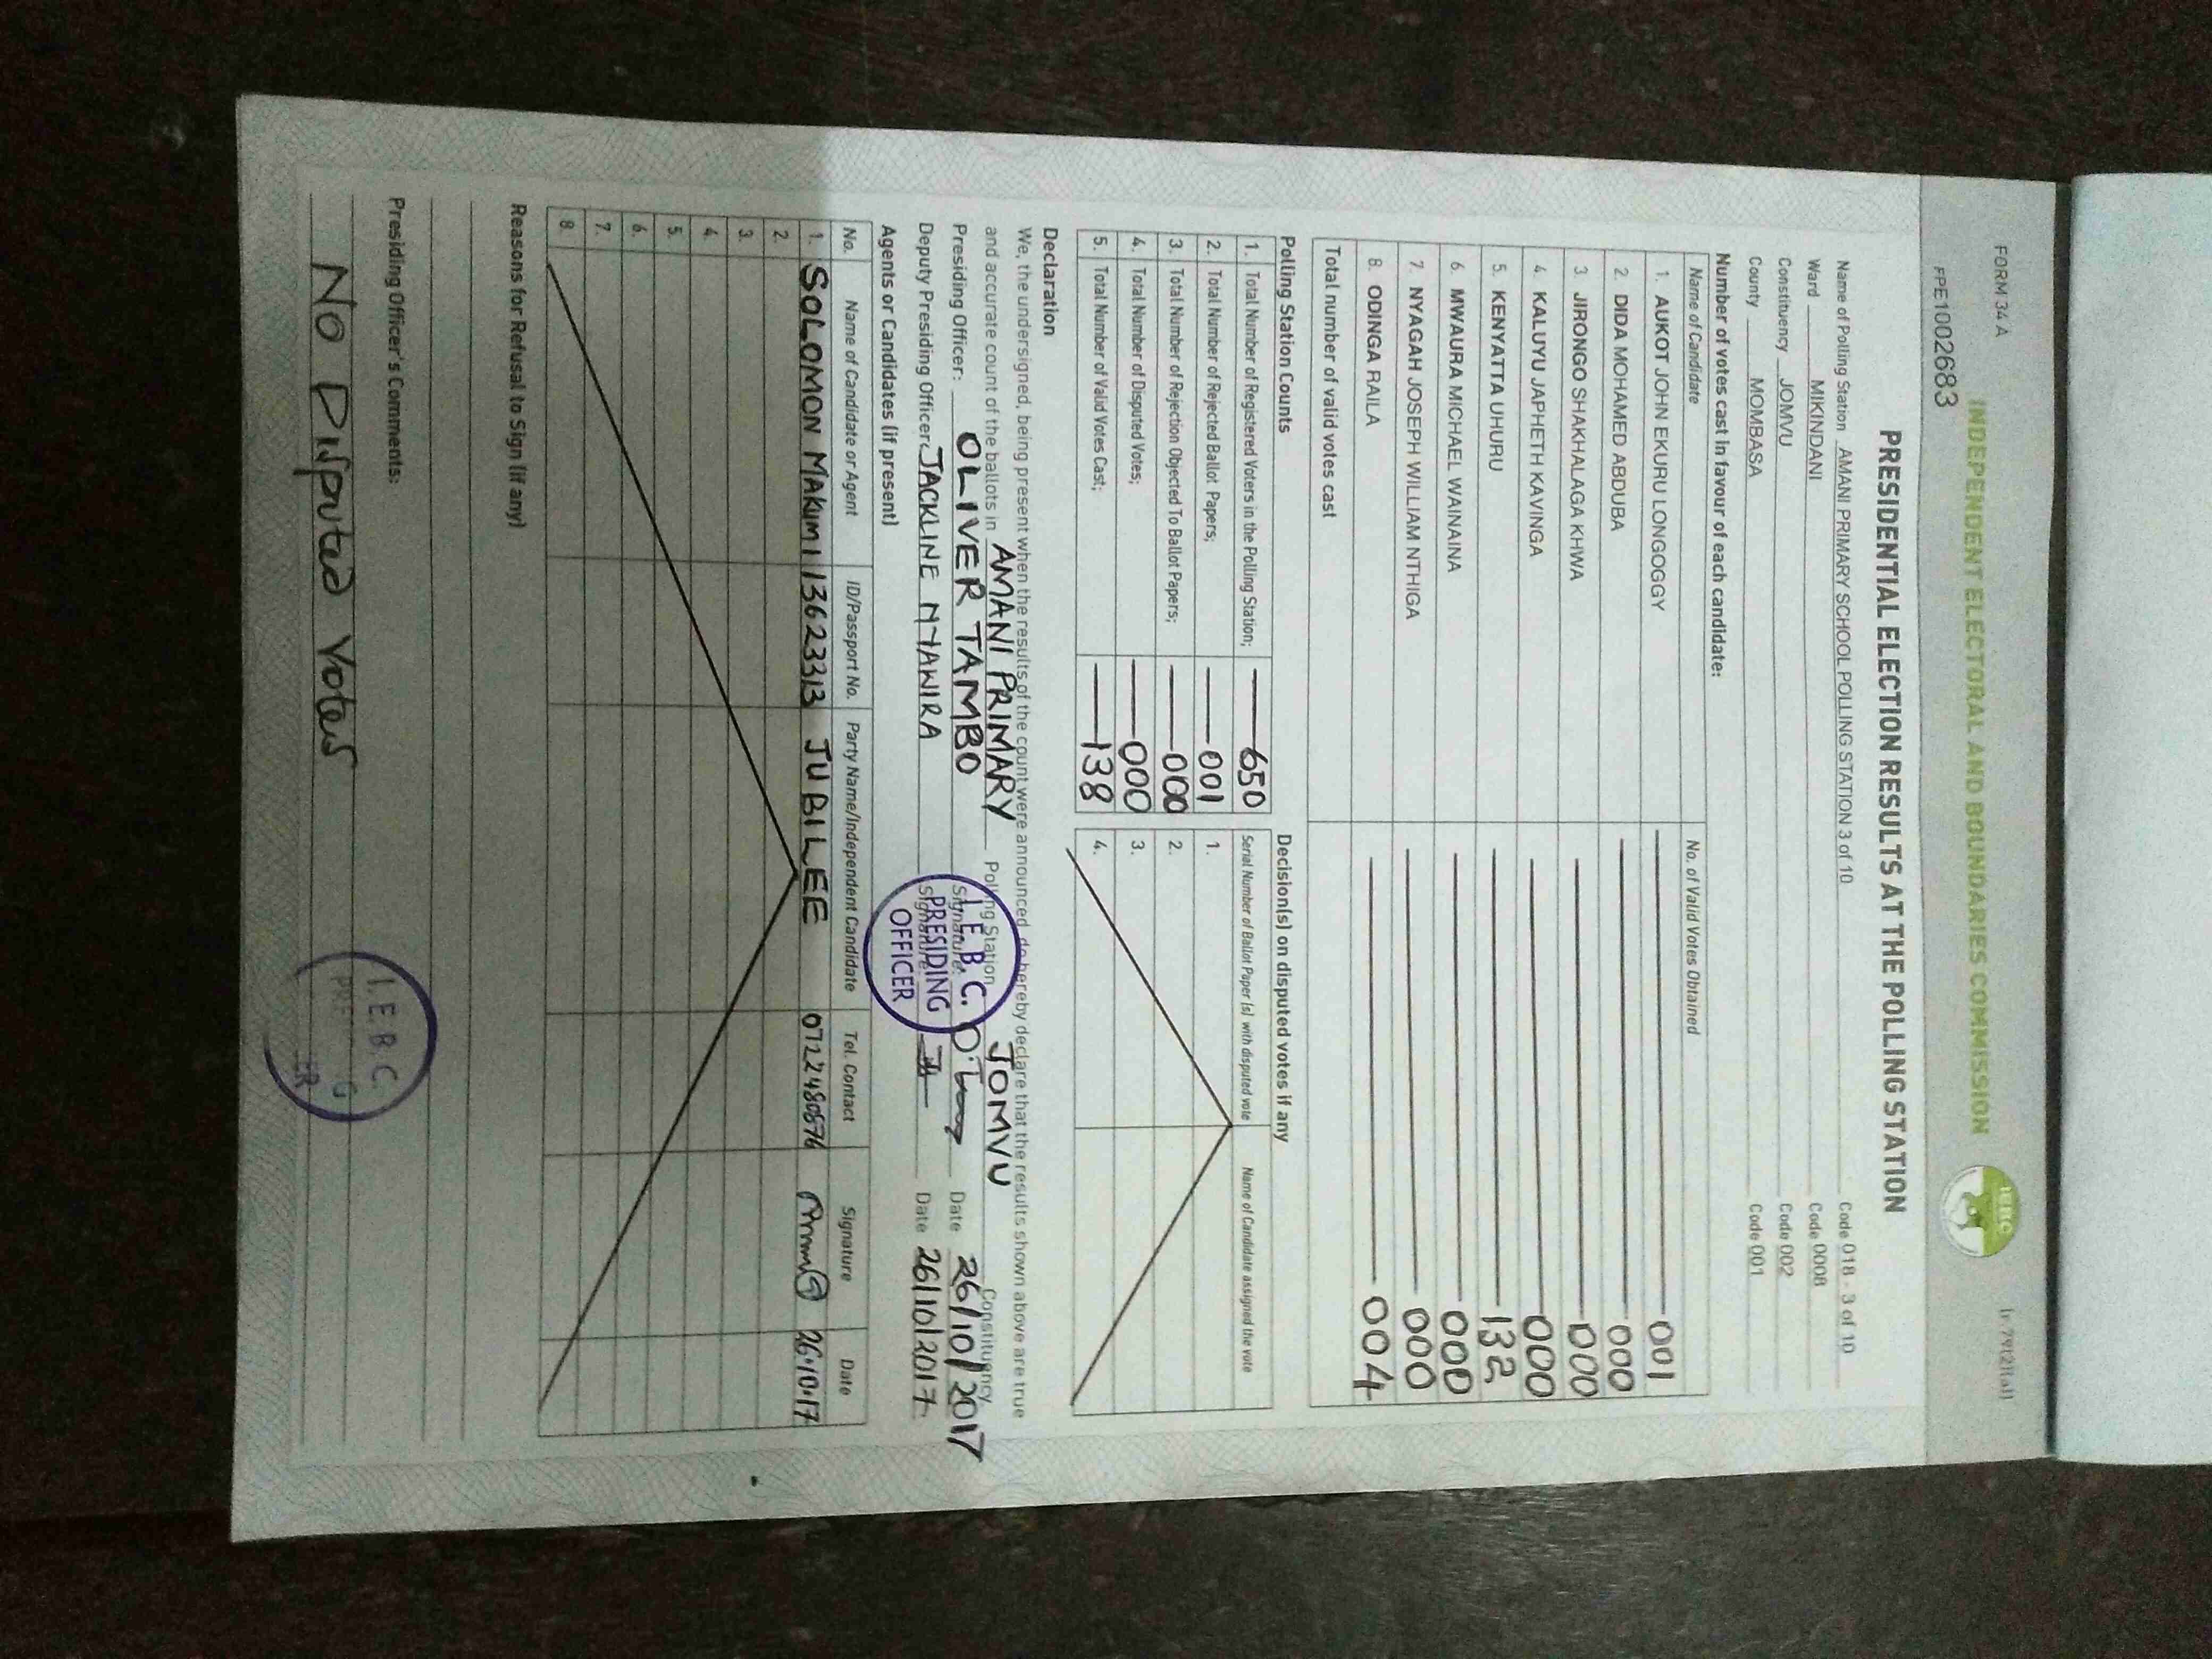 FORM 34 A
INDEPENDENT ELECTORAL AND BOUNDARIES COMMISSION
IEBC
PPE1002683
PRESIDENTIAL ELECTION RESULTS AT THE POLLING STATION
Name of Polling Station AMANI PRIMARY SCHOOL POLLING STATION 3 of 10 Code 018 - 3 of 10
Ward MIKINDANI Code 0008
Constituency JOMVU Code 002
County MOMBASA Code 001
Number of votes cast in favour of each candidate:
Name of Candidate No. of Valid Votes Obtained
1. AUKOT JOHN EKURU LONGOGGY 001
2. DIDA MOHAMED ABDUBA 000
3. JIRONGO SHAKHALAGA KHWA 000
4. KALUYU JAPHETH KAVINGA 000
5. KENYATTA UHURU 132
6. MWAURA MICHAEL WAINAINA 000
7. NYAGAH JOSEPH WILLIAM NTHIGA 000
8. ODINGA RAILA 004
Total number of valid votes cast
Polling Station Counts
1. Total Number of Registered Voters in the Polling Station; 650
2. Total Number of Rejected Ballot Papers; 001
3. Total Number of Rejection Objected To Ballot Papers; 000
4. Total Number of Disputed Votes; 000
5. Total Number of Valid Votes Cast; 138
Decision(s) on disputed votes if any
Serial Number of Ballot Paper (s) with disputed vote Name of Candidate assigned the vote
1.
2.
3.
4.
Declaration
We, the undersigned, being present when the results of the count were announced, do hereby declare that the results shown above are true
and accurate count of the ballots in AMANI PRIMARY Polling Station JOMVU Constituency
Presiding Officer: OLIVER TAMBO Signature: Date 26/10/2017
Deputy Presiding Officer: JACKLINE NYAWIRA Signature: Date 26/10/2017
I.E.B.C.
PRESIDING
OFFICER
Agents or Candidates (if present)
No. Name of Candidate or Agent ID/Passport No. Party Name/Independent Candidate Tel. Contact Signature Date
1. SOLOMON MAKUMI 13623313 JUBILEE 26.10.17
2.
3.
4.
5.
6.
7.
8.
Reasons for Refusal to Sign (if any)
Presiding Officer's Comments:
No Disputed Votes
I.E.B.C.